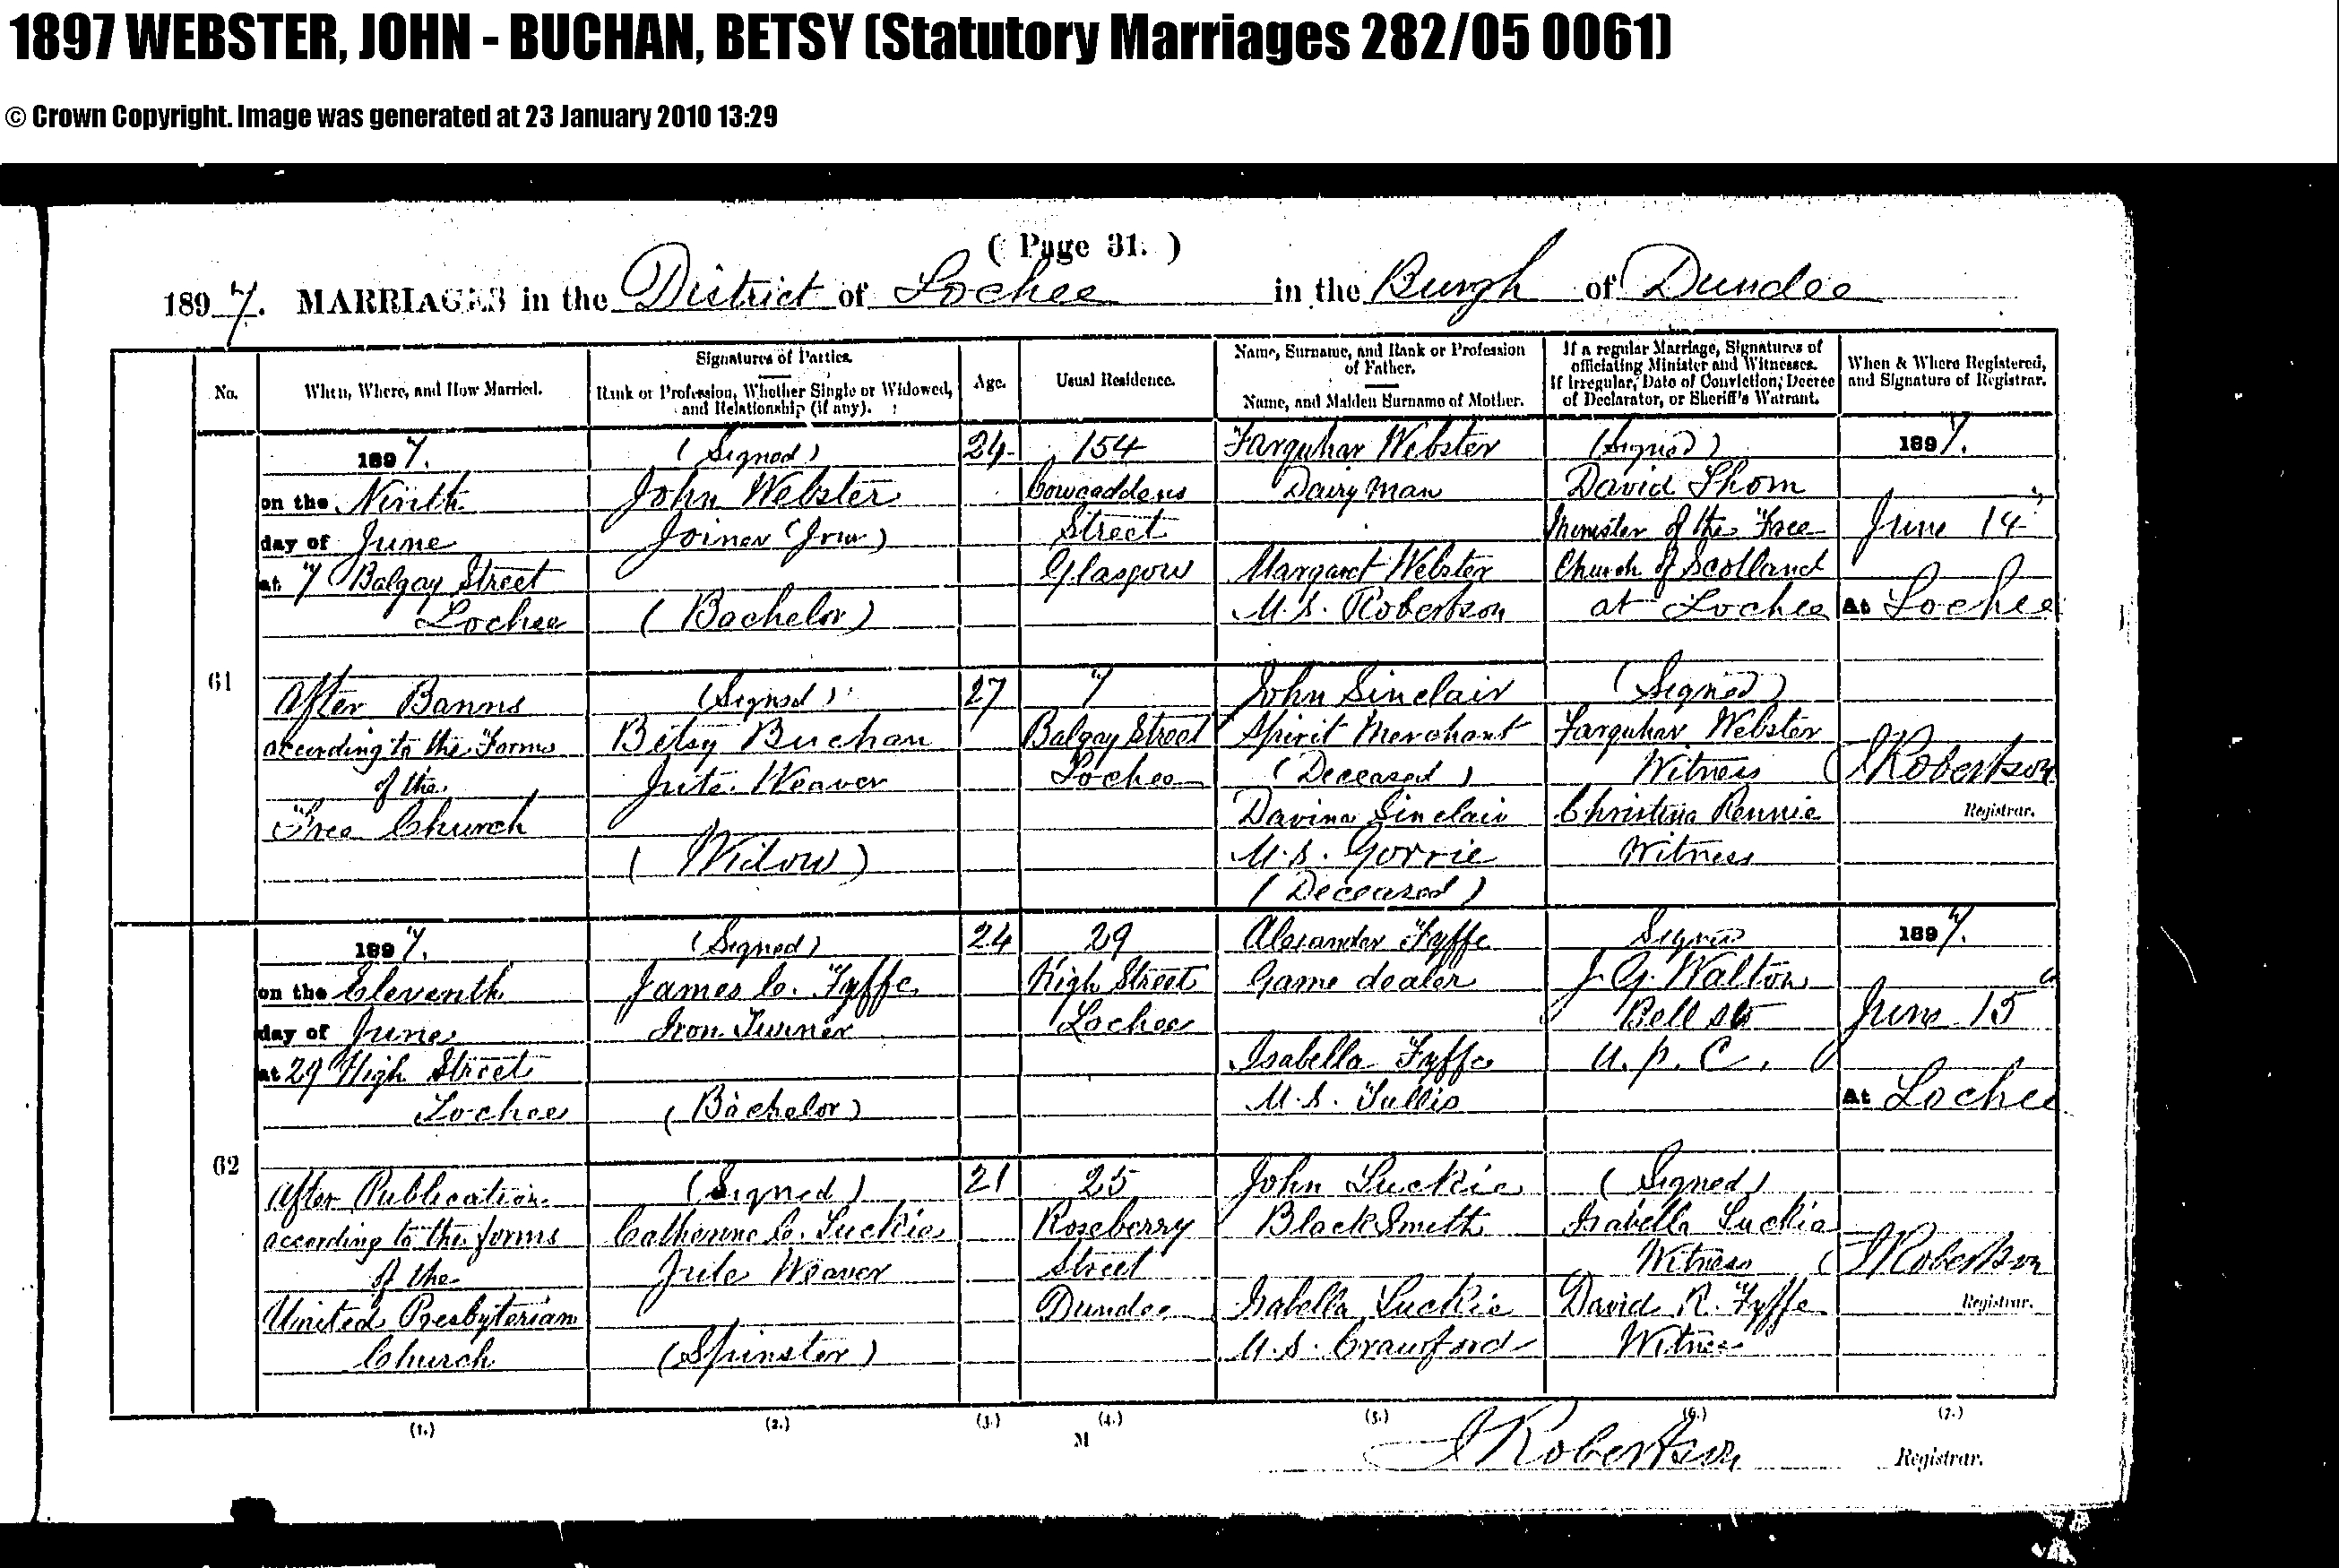 1897 WEBSTER, JOHN - BUCHAN, BETSY (Statutory Marriages 282/05 0061)
© Crown Copyright. Image was generated at 23 January 2010 13:29
( Page 31. )
1897. MARRIAGES in the District of Lochee in the Burgh of Dundee
No.
When, Where, and How Married.
Signatures of Parties.
Rank or Profession, Whether Single or Widowed,
and Relationship (if any).
Age.
Usual Residence.
Name, Surname, and Rank or Profession
of Father.
Name, and Maiden Surname of Mother.
If a regular Marriage, Signatures of
officiating Minister and Witnesses.
If Irregular, Date of Conviction, Decree
of Declarator, or Sheriff's Warrant.
When & Where Registered,
and Signature of Registrar.
61
1897.
on the Ninth
day of June
at 7 Balgay Street
Lochee
After Banns
according to the Forms
of the
Free Church
(Signed)
John Webster
Joiner (Jour)
(Bachelor)
(Signed)
Betsy Buchan
Jute Weaver
(Widow)
24
27
154
Cowcaddens
Street
Glasgow
7
Balgay Street
Lochee
Farquhar Webster
Dairyman
Margaret Webster
M.S. Robertson
John Sinclair
Spirit Merchant
(Deceased)
Davina Sinclair
M.S. Gorrie
(Deceased)
(Signed)
David Thom
Minister of the Free
Church of Scotland
at Lochee
(Signed)
Farquhar Webster
Witness
Christina Rennie
Witness
1897.
June 14"
At Lochee
J Robertson
Registrar.
62
1897.
on the Eleventh
day of June
at 29 High Street
Lochee
After Publication
according to the forms
of the
United Presbyterian
Church
(Signed)
James C. Fyffe
Iron Turner
(Bachelor)
(Signed)
Catherine C. Luckie
Jute Weaver
(Spinster)
24
21
29
High Street
Lochee
25
Roseberry
Street
Dundee
Alexander Fyffe
Game dealer
Isabella Fyffe
M.S. Tullis
John Luckie
BlackSmith
Isabella Luckie
M.S. Crawford
Signed
J. G. Walton
Bell St
U.P.C.
(Signed)
Isabella Luckie
Witness
David R. Fyffe
Witness
1897.
June 15"
At Lochee
J Robertson
Registrar.
(1.) (2.) (3.) (4.) (5.) (6.) (7.)
M
J Robertson Registrar.